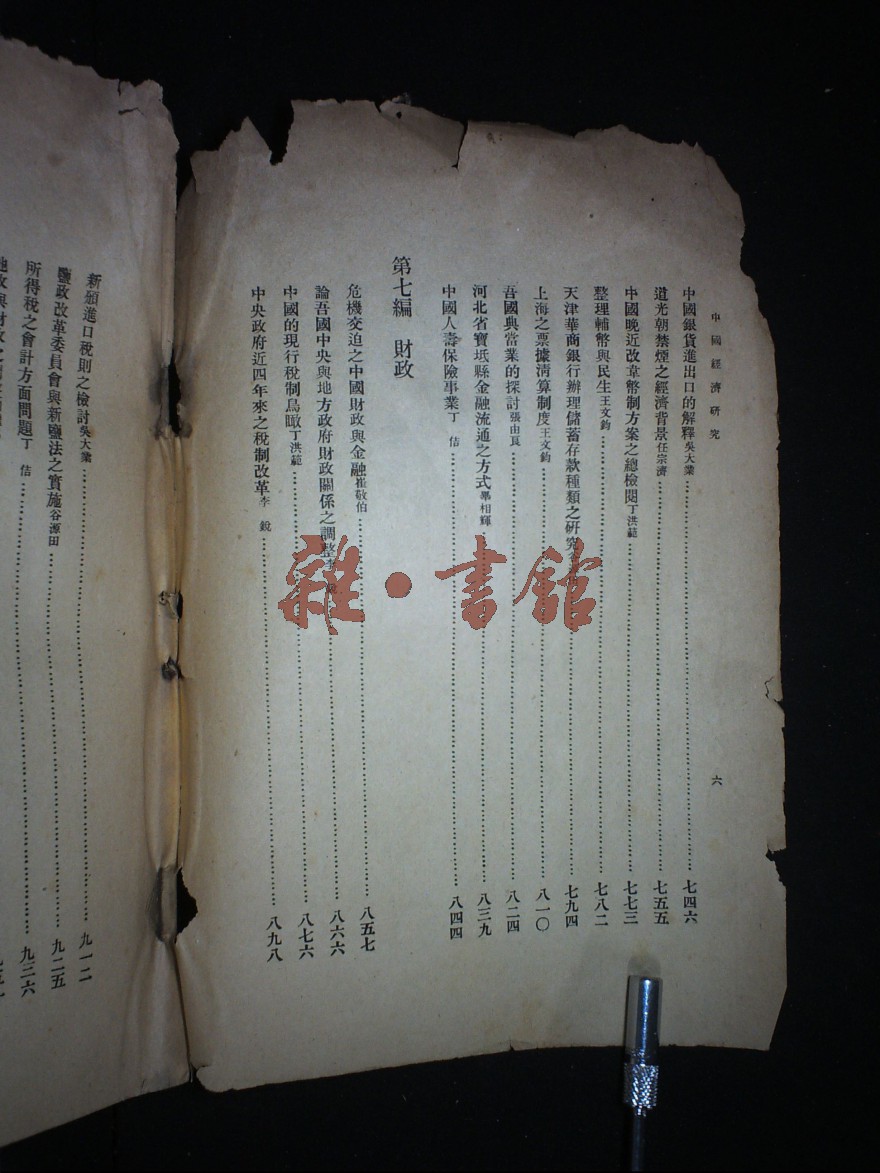 中國經濟研究
六
中國銀貨進出口的解釋 吳大業 七四六
道光朝禁煙之經濟背景 任宗濟 七五五
中國晚近改革幣制方案之總檢閱 丁洪範 七七三
整理輔幣與民生 王文鈞 七八二
天津華商銀行辦理儲蓄存款種類之研究 七九四
上海之票據清算制度 王文鈞 八一〇
吾國典當業的探討 張由良 八二四
河北省寶坻縣金融流通之方式 畢相輝 八三九
中國人壽保險事業 丁佶 八四四
第七編 財政
危機交迫之中國財政與金融 崔敬伯 八五七
論吾國中央與地方政府財政關係之調整 李銳 八六六
中國的現行稅制鳥瞰 丁洪範 八七六
中央政府近四年來之稅制改革 李銳 八九八
新頒進口稅則之檢討 吳大業 九一二
鹽政改革委員會與新鹽法之實施 谷源田 九二五
所得稅之會計方面問題 丁佶 九三六
雜·書館